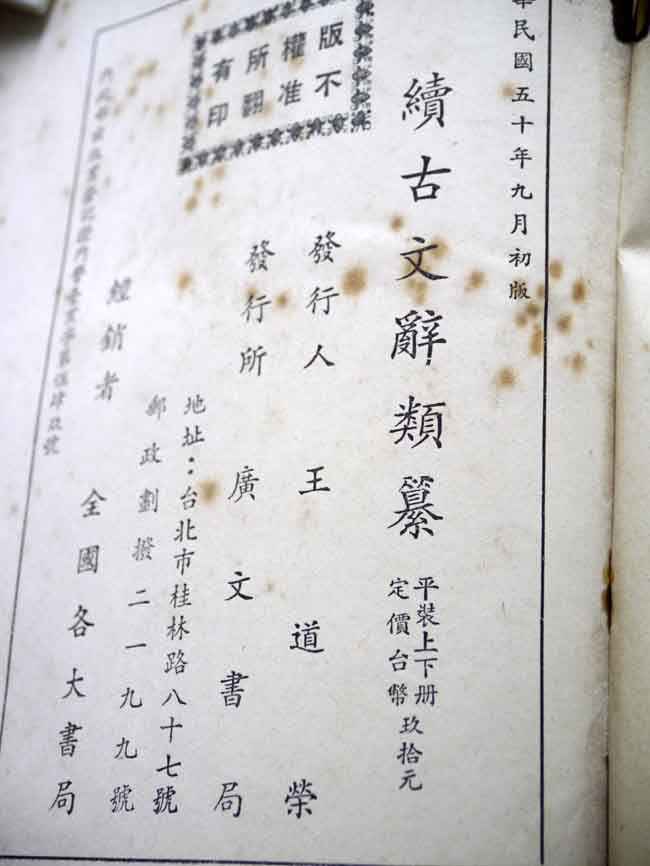 華民國五十年九月初版
續古文辭類纂
平裝上下册
定價台幣玖拾元
版權所有
不准翻印
發行人 王道榮
發行所 廣文書局
地址：台北市桂林路八十七號
郵政劃撥二一九九號
經銷者 全國各大書局